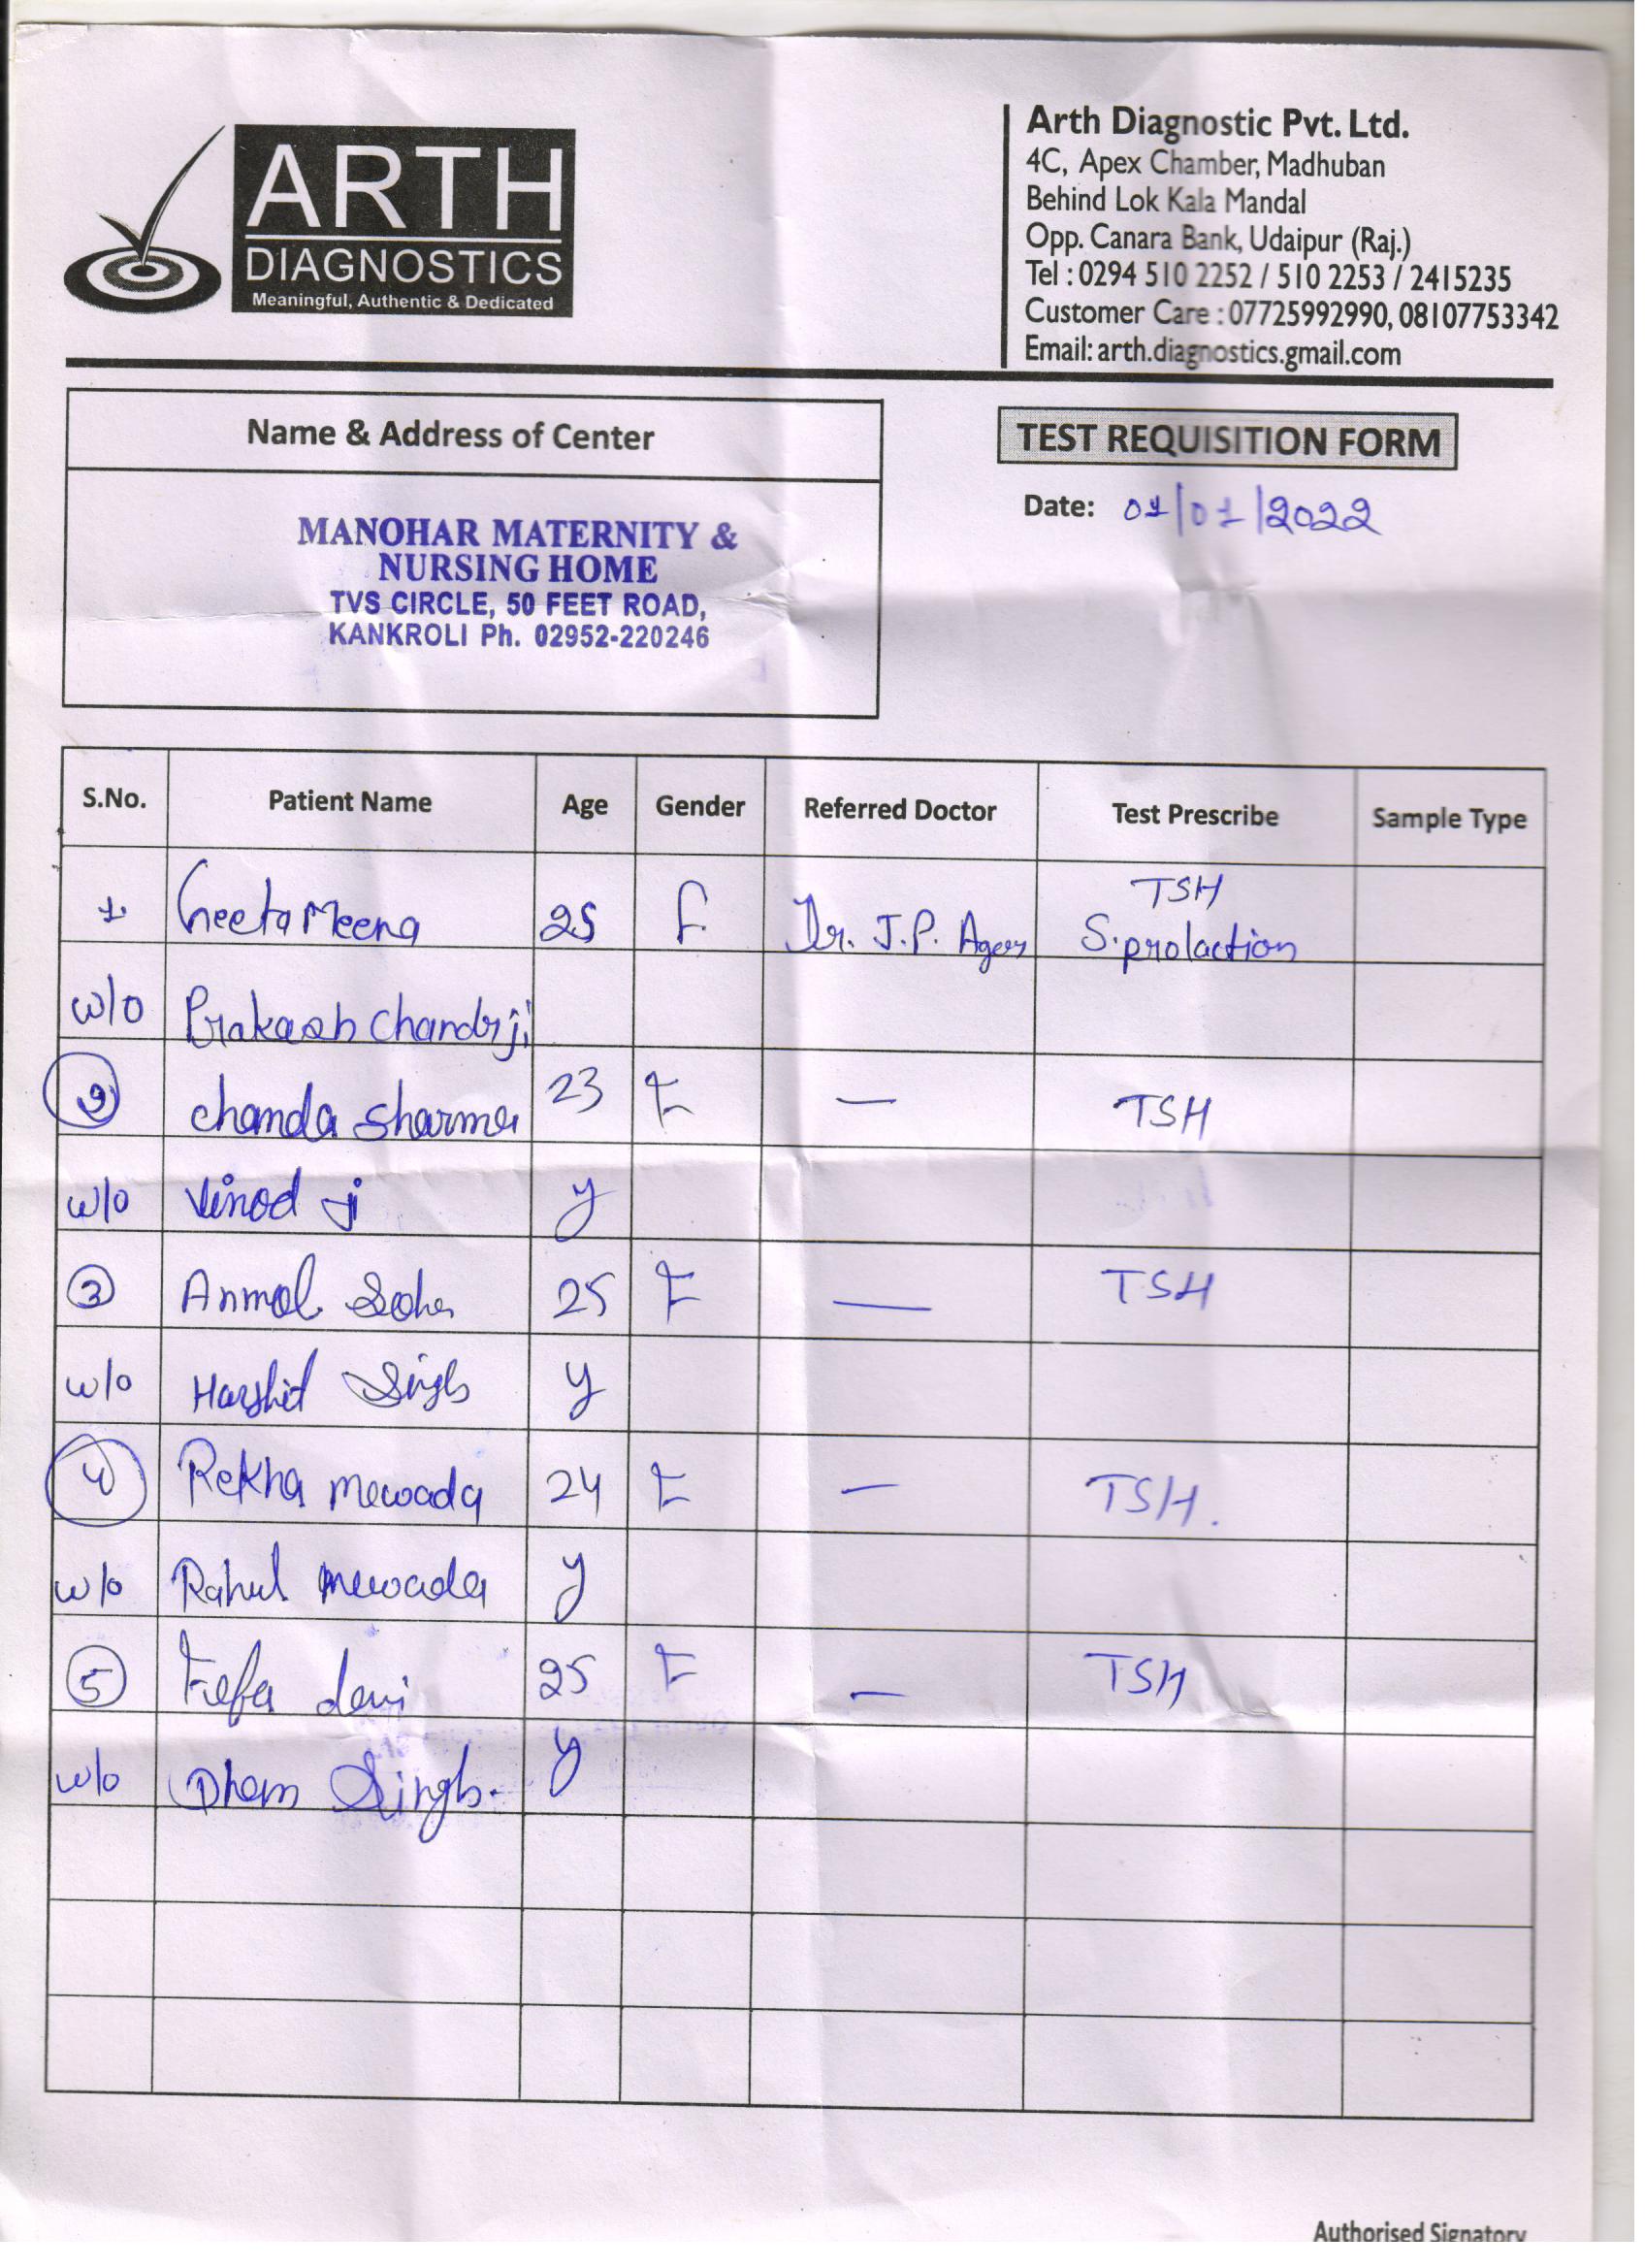 ARTH
DIAGNOSTICS
Meaningful, Authentic & Dedicated
Arth Diagnostic Pvt. Ltd.
4C, Apex Chamber, Madhuban
Behind Lok Kala Mandal
Opp. Canara Bank, Udaipur (Raj.)
Tel : 0294 510 2252 / 510 2253 / 2415235
Customer Care : 07725992990, 08107753342
Email: arth.diagnostics.gmail.com
Name & Address of Center
MANOHAR MATERNITY &
NURSING HOME
TVS CIRCLE, 50 FEET ROAD,
KANKROLI Ph. 02952-220246
TEST REQUISITION FORM
Date: 01/01/2022
S.No. Patient Name Age Gender Referred Doctor Test Prescribe Sample Type
TSH
1. Geeta Meena 25 F. Dr. J.P. S.prolaction
w/o Prakash Chandrji
2 Chanda Sharma 23 F — TSH
w/o Vinod ji y
3 Anmol 25 F — TSH
w/o Harshid Singh y
4 Rekha mewada 24 F — TSH.
w/o Rahul mewada y
5 devi 25 F — TSH
w/o Singh. y
Authorised Signatory